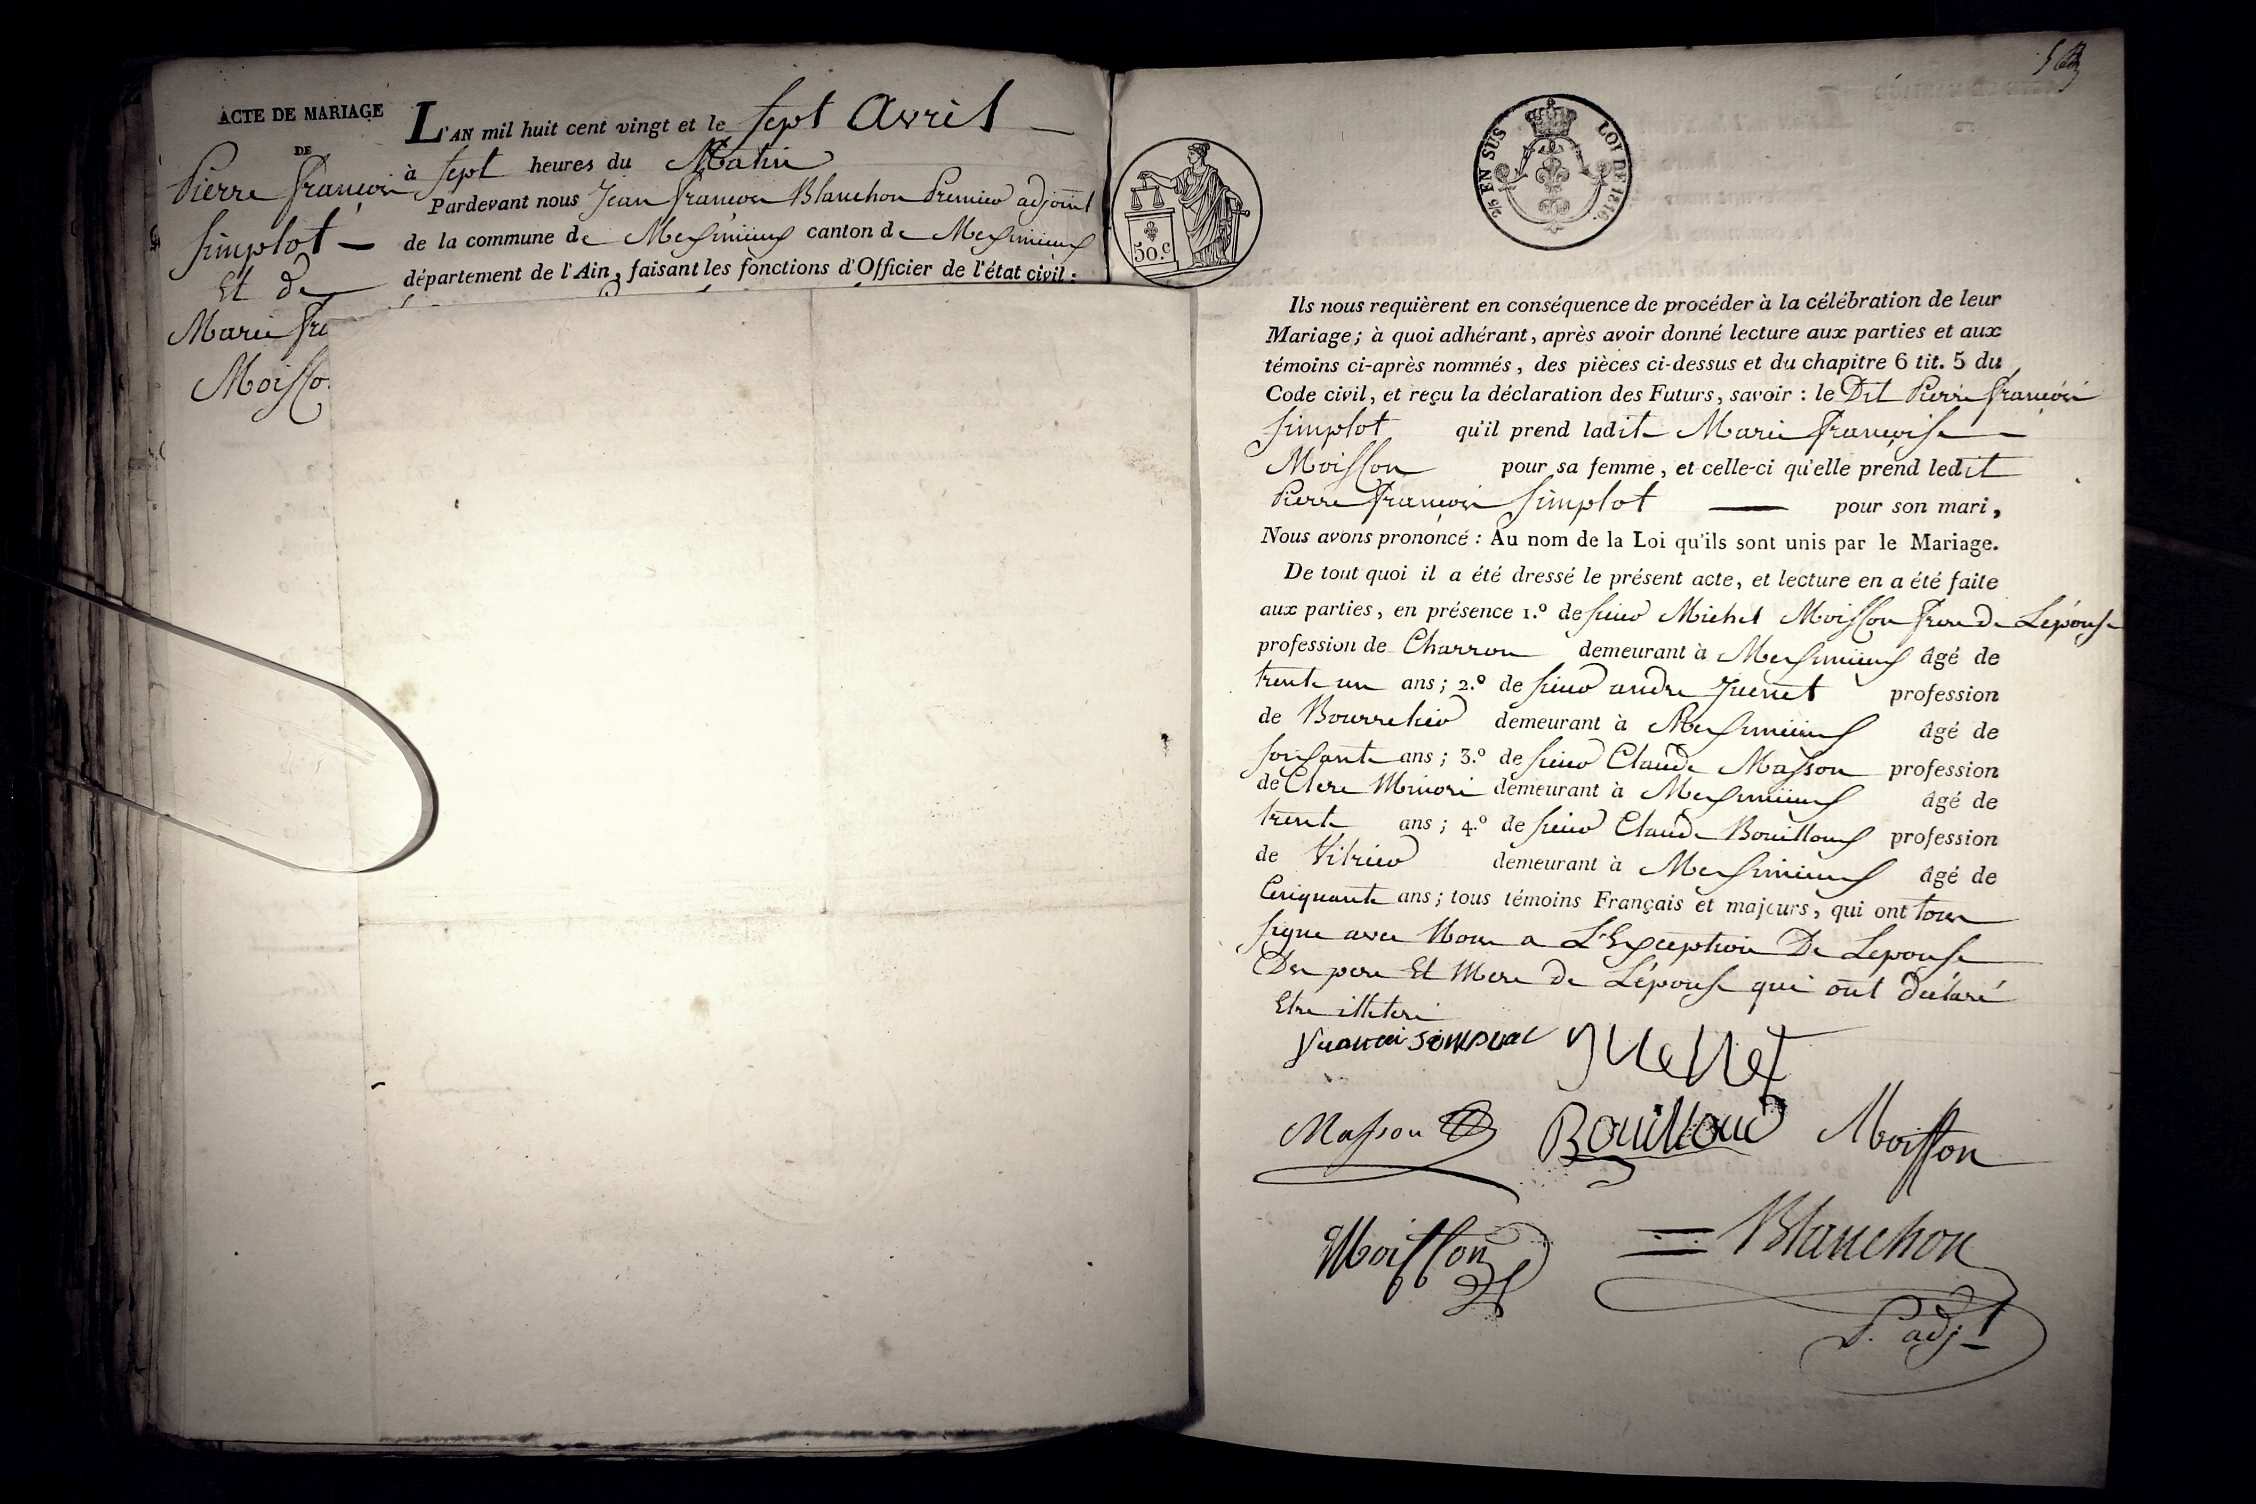 ACTE DE MARIAGE
DE
Pierre François
Simplot —
Et de
Marie
Moisso
L'AN mil huit cent vingt et le sept Avril —
à sept heures du Matin
Pardevant nous Jean François Blanchon Premier adjoint
de la commune de Meximieux canton de Meximieux
département de l'Ain, faisant les fonctions d'Officier de l'état civil :
50.c
2/5 EN SUS
LOI DE 1816.
Ils nous requièrent en conséquence de procéder à la célébration de leur
Mariage ; à quoi adhérant, après avoir donné lecture aux parties et aux
témoins ci-après nommés, des pièces ci-dessus et du chapitre 6 tit. 5 du
Code civil, et reçu la déclaration des Futurs, savoir : le Dit Pierre François
Simplot qu'il prend ladite Marie Françoise —
Moisson pour sa femme, et celle-ci qu'elle prend ledit
Pierre François Simplot — pour son mari,
Nous avons prononcé : Au nom de la Loi qu'ils sont unis par le Mariage.
De tout quoi il a été dressé le présent acte, et lecture en a été faite
aux parties, en présence 1.º de sieur Michel Moisson frere de Lépouse
profession de Charron demeurant à Meximieux âgé de
trente un ans ; 2.º de sieur andre Juenet profession
de Bourrelier demeurant à Meximieux âgé de
soixante ans ; 3.º de sieur Claude Masson profession
de Clerc Minoré demeurant à Meximieux âgé de
trente ans ; 4.º de sieur Claude Bouilloux profession
de Vitrier demeurant à Meximieux âgé de
Cinquante ans ; tous témoins Français et majeurs, qui ont tous
signe avec Nous a L'Exception De Lepouse
Des pere Et Mere de Lépouse qui ont déclaré
Etre
Juenet
Masson
Bouilloud
Moisson
Moisson
= Blanchon
P. adjt